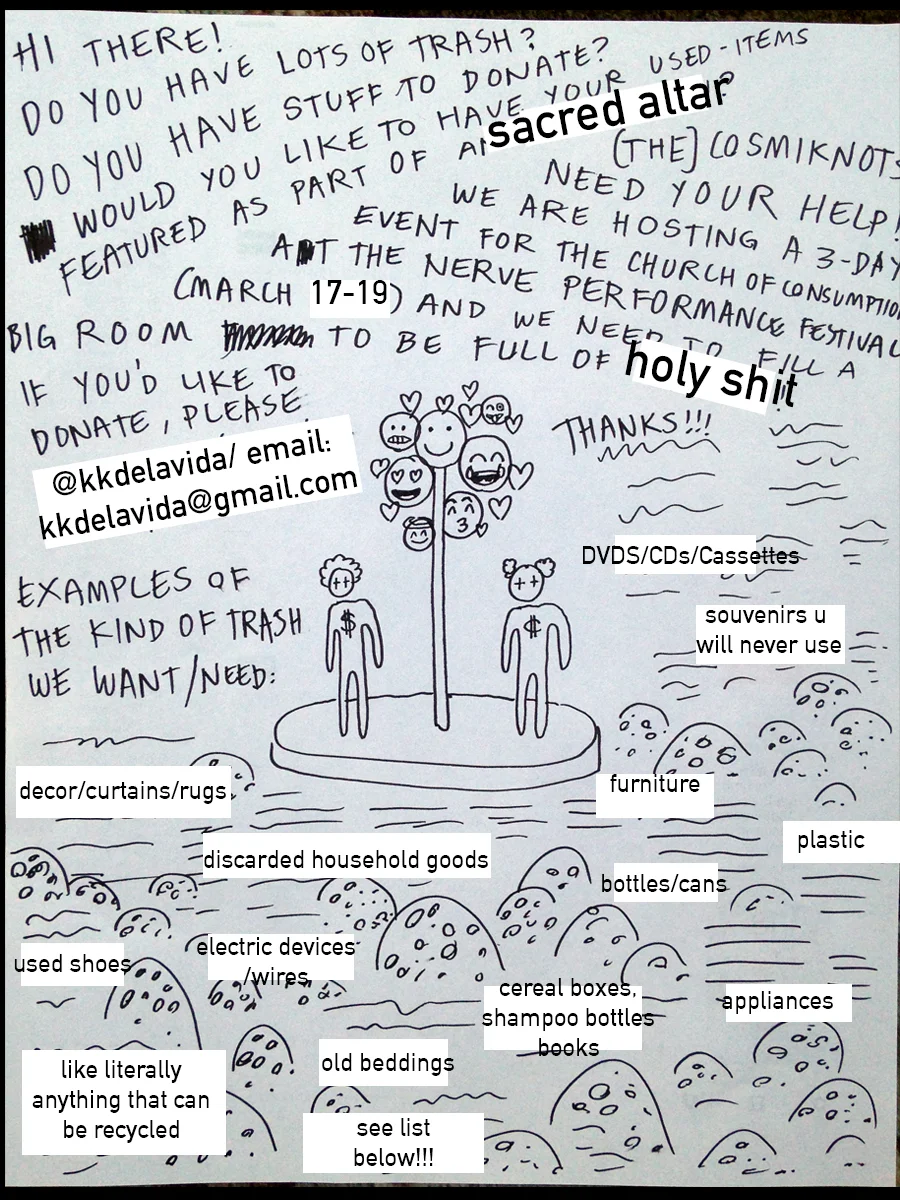 HI THERE!
DO YOU HAVE LOTS OF TRASH?
DO YOU HAVE STUFF TO DONATE?
WOULD YOU LIKE TO HAVE YOUR USED-ITEMS
FEATURED AS PART OF sacred altar?
[THE] COSMIKNOTS
NEED YOUR HELP!
WE ARE HOSTING A 3-DAY
EVENT FOR THE CHURCH OF CONSUMPTION
AT THE NERVE PERFORMANCE FESTIVAL
(MARCH 17-19) AND WE NEED TO FILL A
BIG ROOM TO BE FULL OF holy shit
IF YOU'D LIKE TO
DONATE, PLEASE
@kkdelavida/ email:
kkdelavida@gmail.com
THANKS!!!
$
$
EXAMPLES OF
THE KIND OF TRASH
WE WANT/NEED:
DVDS/CDs/Cassettes
souvenirs u
will never use
decor/curtains/rugs
furniture
plastic
discarded household goods
bottles/cans
used shoes
electric devices
/wires
cereal boxes,
shampoo bottles
books
appliances
like literally
anything that can
be recycled
old beddings
see list
below!!!